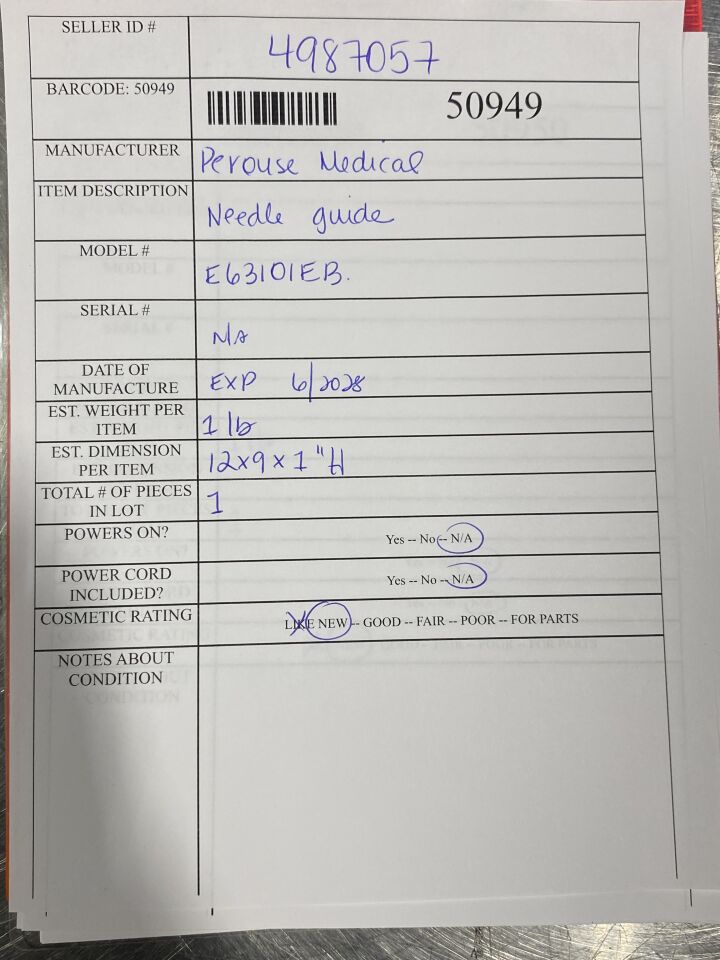 SELLER ID #
4987057
BARCODE: 50949
50949
MANUFACTURER
Perouse Medical
ITEM DESCRIPTION
Needle guide
MODEL #
E63101EB.
SERIAL #
N/A
DATE OF
MANUFACTURE
EXP 6/2028
EST. WEIGHT PER
ITEM
1 lb
EST. DIMENSION
PER ITEM
12x9x1"H
TOTAL # OF PIECES
IN LOT
1
POWERS ON?
Yes -- No -- N/A
POWER CORD
INCLUDED?
Yes -- No -- N/A
COSMETIC RATING
LIKE NEW -- GOOD -- FAIR -- POOR -- FOR PARTS
NOTES ABOUT
CONDITION